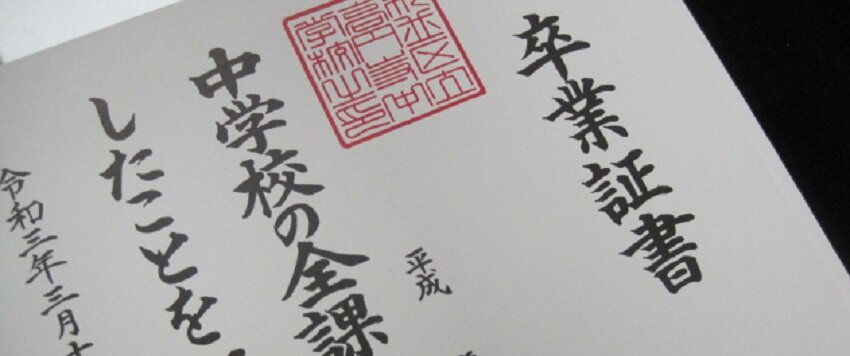 卒業証書
平成
中学校の全課
したことを
令和三年三月十